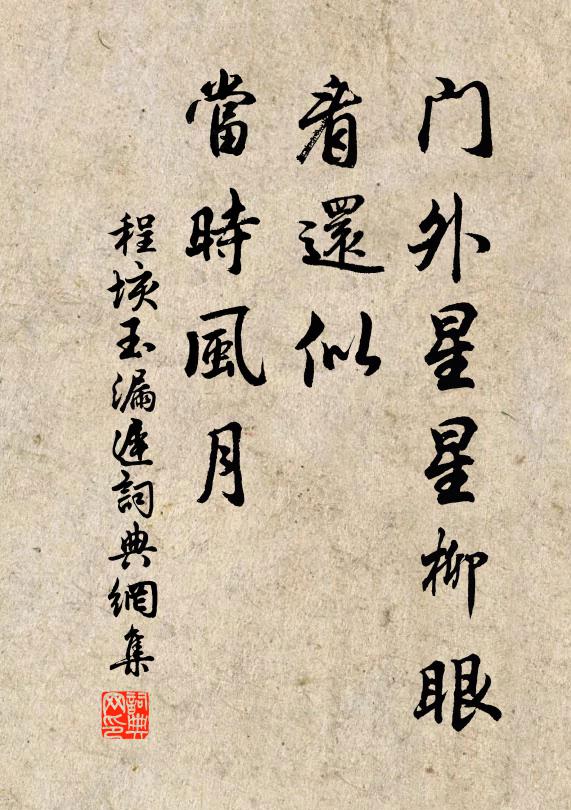 门外星星柳眼
看還似
當時風月
程垓玉漏遲詞典網集
詞典網印